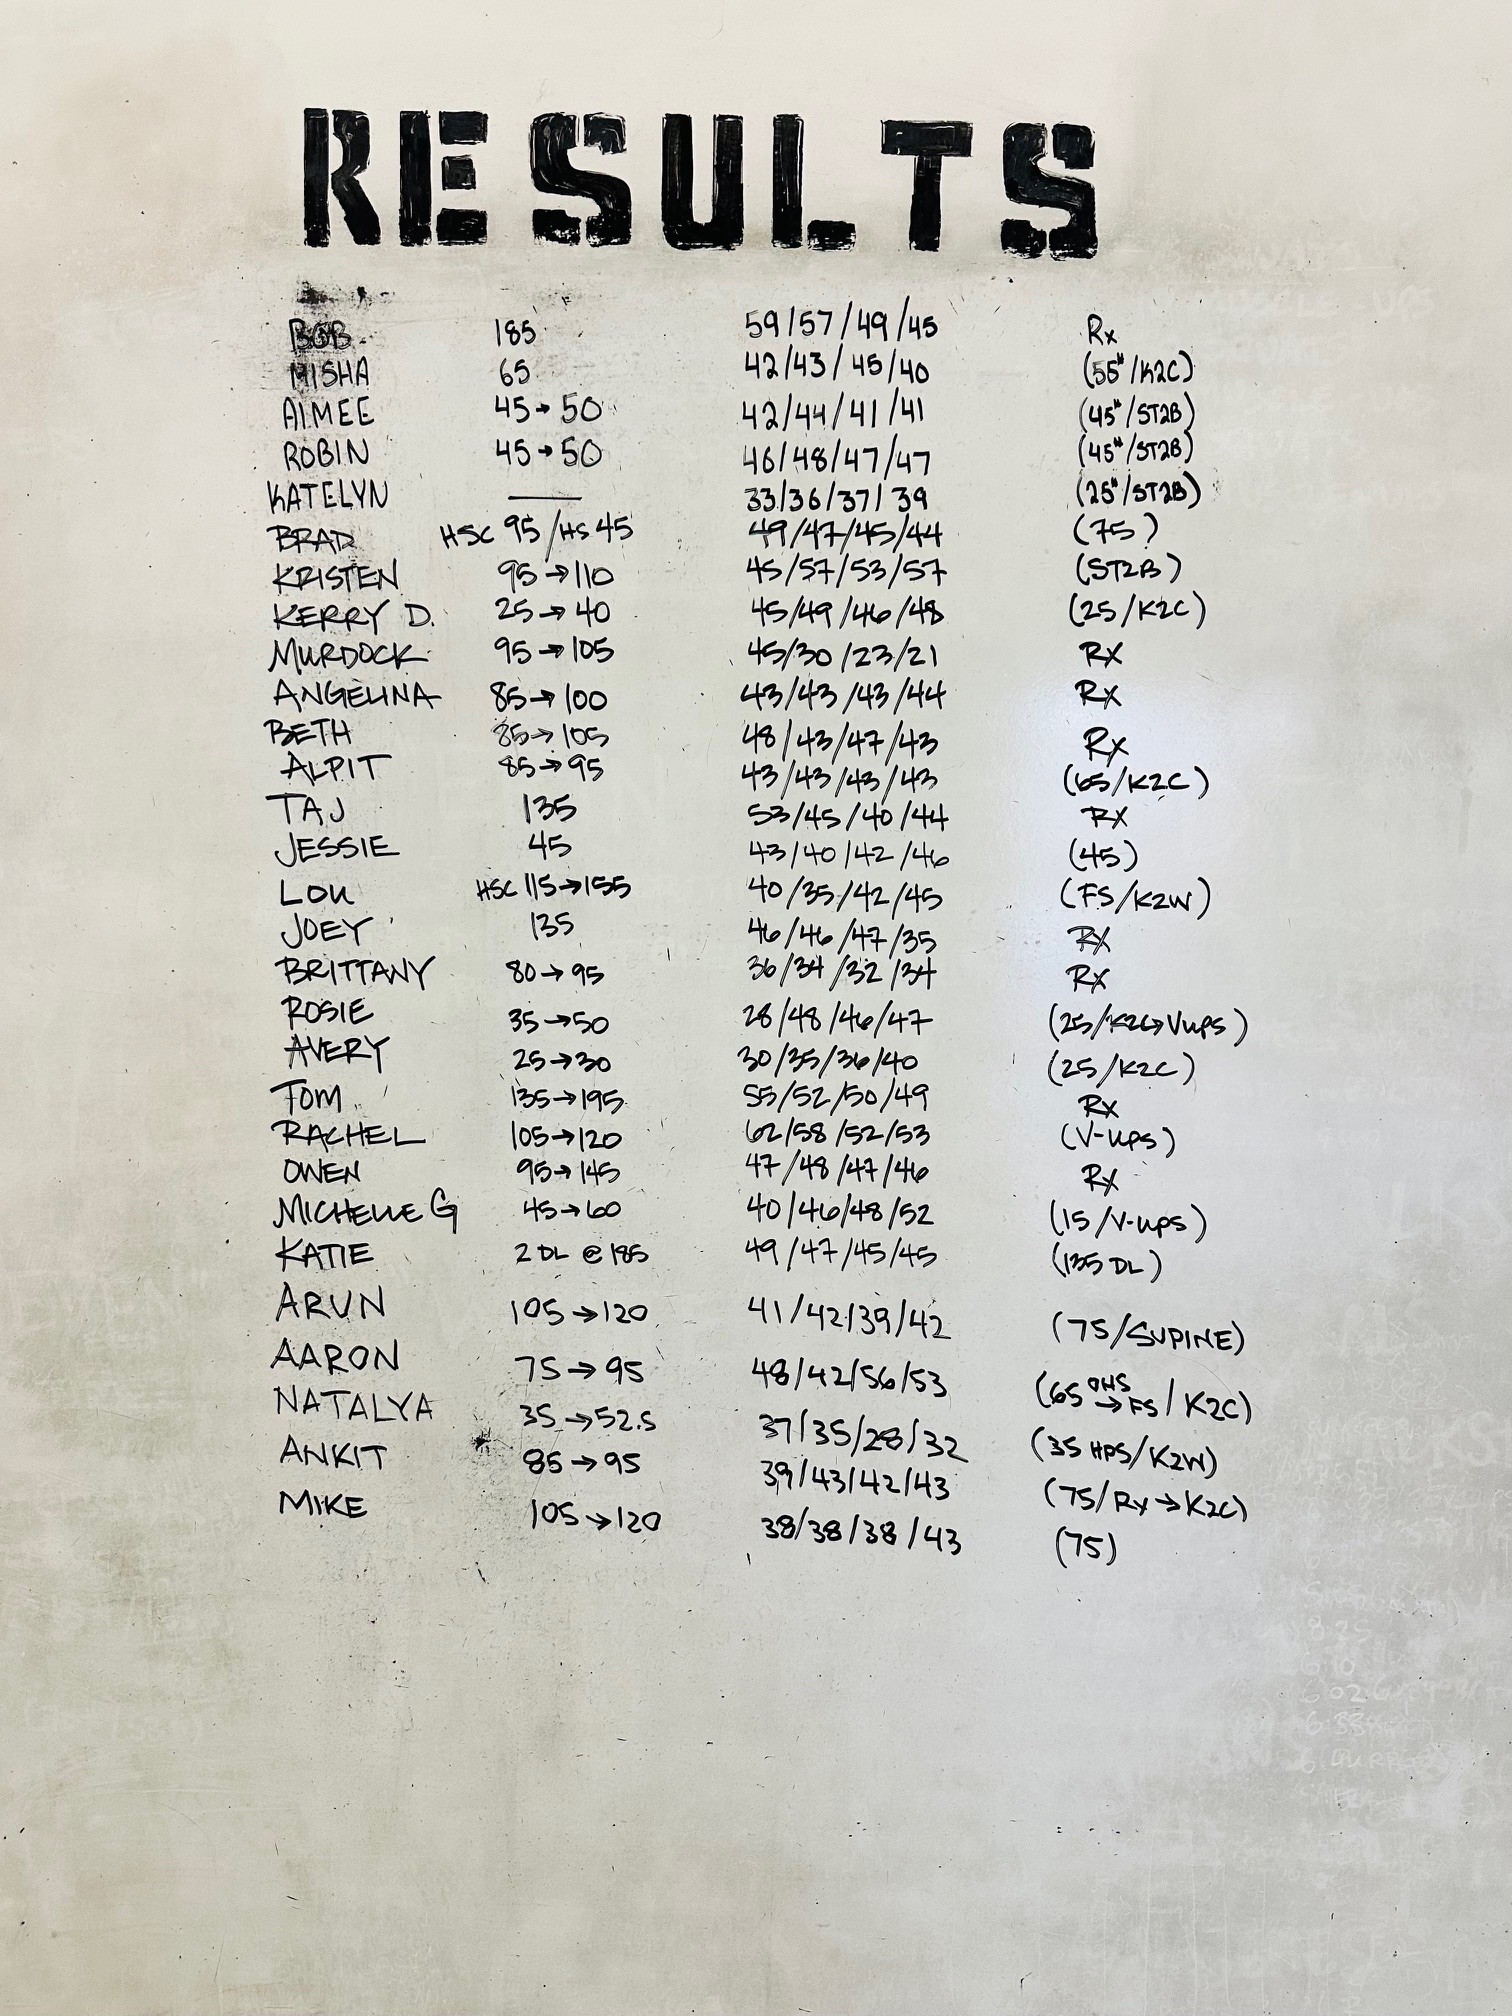 RESULTS
BOB 185 59/57/49/45 Rx
MISHA 65 42/43/45/40 (55#/K2C)
AIMEE 45→50 42/44/41/41 (45#/ST2B)
ROBIN 45→50 46/48/47/47 (45#/ST2B)
KATELYN — 33/36/37/39 (25#/ST2B)
BRAD HSC 95/HS 45 49/47/45/44 (75)
KRISTEN 95→110 45/57/53/57 (ST2B)
KERRY D. 25→40 45/49/46/48 (25/K2C)
MURDOCK 95→105 45/30/23/21 RX
ANGELINA 85→100 43/43/43/44 RX
BETH 85→105 48/43/47/43 RX
ALPIT 85→95 43/43/43/43 (65/K2C)
TAJ 135 53/45/40/44 RX
JESSIE 45 43/40/42/46 (45)
LOU HSC 115→155 40/35/42/45 (FS/K2W)
JOEY 135 46/46/47/35 RX
BRITTANY 80→95 36/34/32/34 RX
ROSIE 35→50 28/48/46/47 (25/K2C→Vups)
AVERY 25→30 30/35/36/40 (25/K2C)
TOM 135→195 55/52/50/49 Rx
RACHEL 105→120 62/58/52/53 (V-ups)
OWEN 95→145 47/48/47/46 Rx
MICHELLE G 45→60 40/46/48/52 (15/V-ups)
KATIE 2 DL @ 185 49/47/45/45 (135 DL)
ARUN 105→120 41/42/39/42 (75/SUPINE)
AARON 75→95 48/42/56/53 (65 OHS→FS/K2C)
NATALYA 35→52.5 37/35/28/32 (35 HPS/K2W)
ANKIT 85→95 39/43/42/43 (75/Rx→K2C)
MIKE 105→120 38/38/38/43 (75)